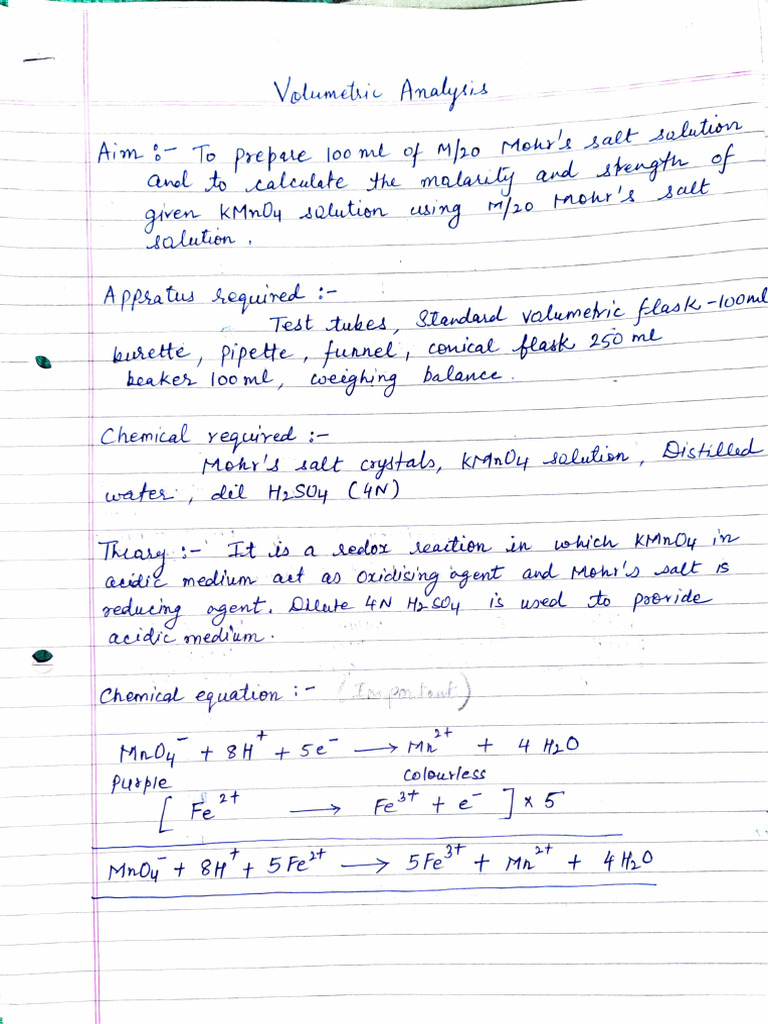 Volumetric Analysis
Aim :- To prepare 100 ml of M/20 Mohr's salt solution
and to calculate the molarity and strength of
given KMnO4 solution using M/20 Mohr's salt
solution.
Appratus required :-
Test tubes, Standard volumetric flask - 100ml
burette, pipette, funnel, conical flask 250 ml
beaker 100 ml, weighing balance.
Chemical required :-
Mohr's salt crystals, KMnO4 solution, Distilled
water, dil H2SO4 (4N)
Theory :- It is a redox reaction in which KMnO4 in
acidic medium act as oxidising agent and Mohr's salt is
reducing agent. Dilute 4N H2SO4 is used to provide
acidic medium.
Chemical equation :- (Important)
MnO4⁻ + 8H⁺ + 5e⁻ ⟶ Mn²⁺ + 4 H2O
Purple Colourless
[ Fe²⁺ ⟶ Fe³⁺ + e⁻ ] × 5
MnO4⁻ + 8H⁺ + 5Fe²⁺ ⟶ 5Fe³⁺ + Mn²⁺ + 4H2O